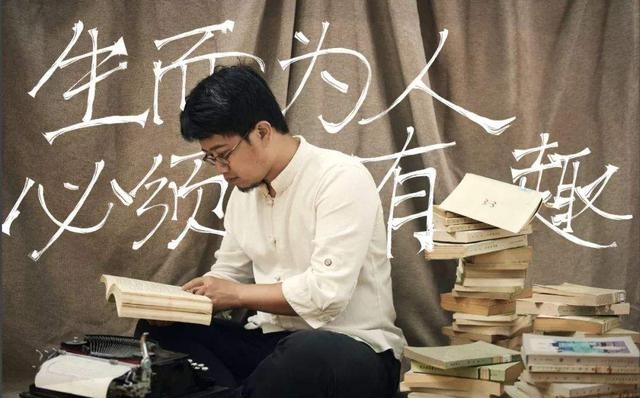 生而为人
必须有趣